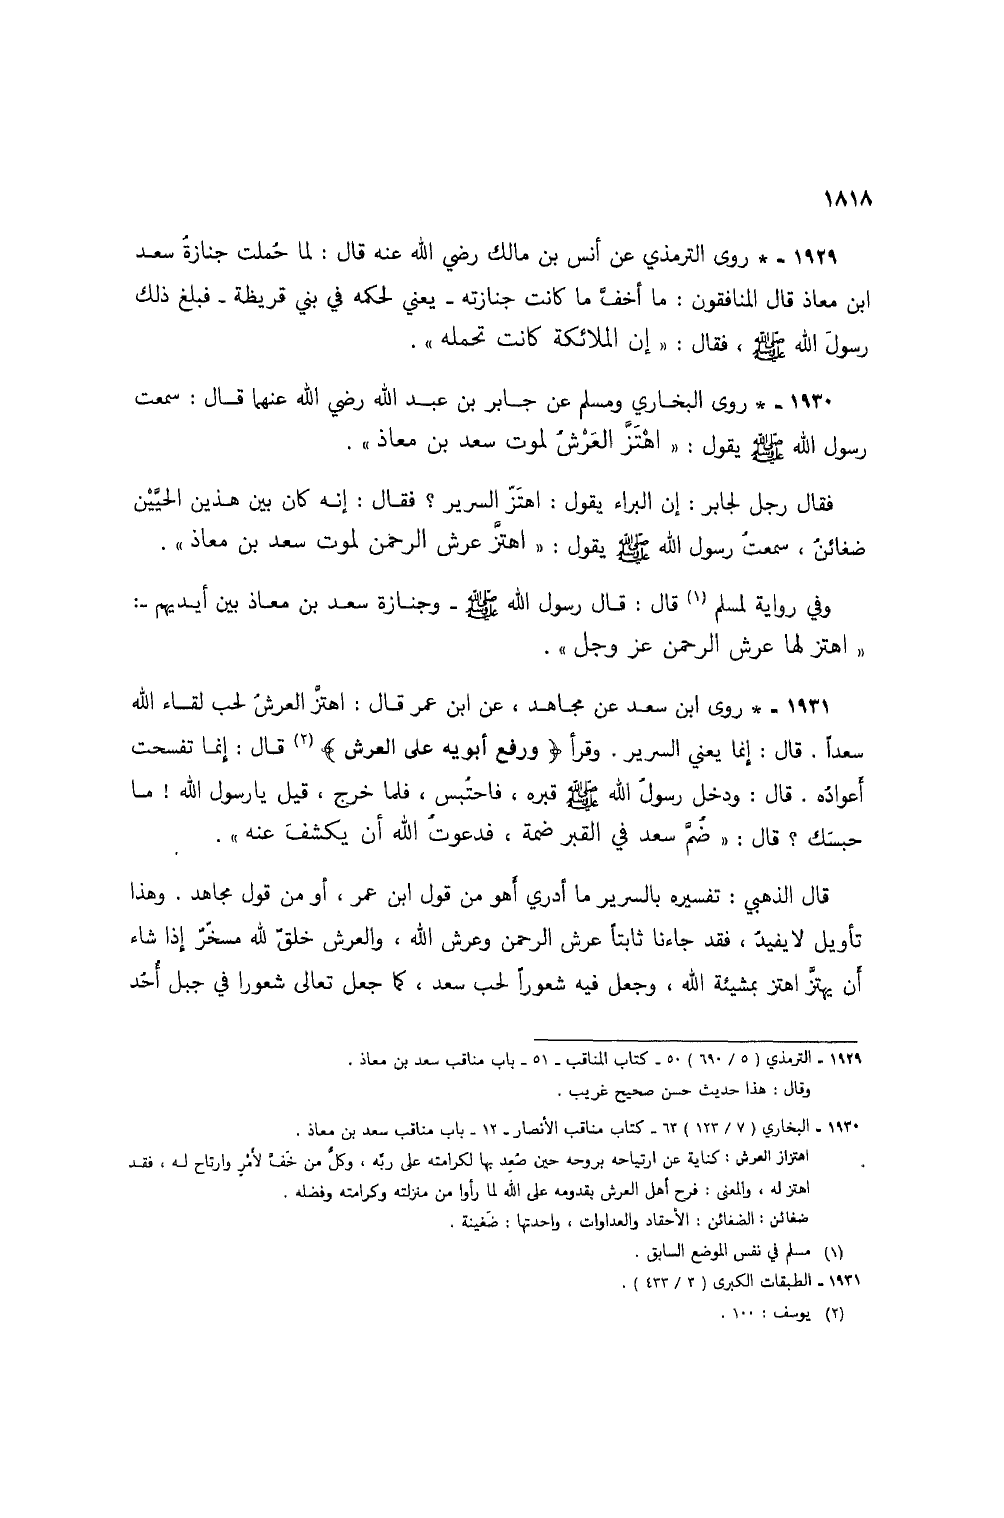 ١٨١٨
١٩٢٩ ـ * روى الترمذي عن أنس بن مالك رضي الله عنه قال : لما حُملت جنازةُ سعد
ابن معاذ قال المنافقون : ما أخفَّ ما كانت جنازته ـ يعني لحكمه في بني قريظة ـ فبلغ ذلك
رسولَ الله ﷺ ، فقال : « إن الملائكة كانت تحمله » .
١٩٣٠ ـ * روى البخاري ومسلم عن جابر بن عبد الله رضي الله عنهما قال : سمعت
رسول الله ﷺ يقول : « اهْتَزَّ العَرْشُ لموت سعد بن معاذ » .
فقال رجل لجابر : إن البراء يقول : اهتَزّ السرير ؟ فقال : إنه كان بين هذين الحيَّيْن
ضغائنُ ، سمعتُ رسول الله ﷺ يقول : « اهتزَّ عرش الرحمن لموت سعد بن معاذ » .
وفي رواية لمسلم (١) قال : قال رسول الله ﷺ ـ وجنازة سعد بن معاذ بين أيديهم ـ:
« اهتز لها عرش الرحمن عز وجل » .
١٩٣١ ـ * روى ابن سعد عن مجاهد ، عن ابن عمر قال : اهتزَّ العرشُ لحب لقاء الله
سعداً . قال : إنما يعني السرير . وقرأ ﴿ ورفع أبويه على العرش ﴾ (٢) قال : إنما تفسحت
أعوادُه . قال : ودخل رسولُ الله ﷺ قبره ، فاحتُبس ، فلما خرج ، قيل يارسول الله ! ما
حبسَك ؟ قال : « ضُمَّ سعد في القبر ضمة ، فدعوتُ الله أن يكشفَ عنه » .
قال الذهبي : تفسيره بالسرير ما أدري أهو من قول ابن عمر ، أو من قول مجاهد . وهذا
تأويل لايفيدُ ، فقد جاءنا ثابتاً عرش الرحمن وعرش الله ، والعرش خلقٌ لله مسخّرٌ إذا شاء
أن يهتزَّ اهتز بمشيئة الله ، وجعل فيه شعوراً لحب سعد ، كما جعل تعالى شعورا في جبل أُحُد
١٩٢٩ ـ الترمذي ( ٥ / ٦٩٠ ) ٥٠ ـ كتاب المناقب ـ ٥١ ـ باب مناقب سعد بن معاذ .
وقال : هذا حديث حسن صحيح غريب .
١٩٣٠ ـ البخاري ( ٧ / ١٢٣ ) ٦٣ ـ كتاب مناقب الأنصار ـ ١٢ ـ باب مناقب سعد بن معاذ .
اهتزاز العرش : كناية عن ارتياحه بروحه حين صُعِد بها لكرامته على ربّه ، وكلُّ من خَفَّ لأمْرٍ وارتاح له ، فقد
اهتز له ، والمعنى : فرح أهل العرش بقدومه على الله لما رأوا من منزلته وكرامته وفضله .
ضغائن : الضغائن : الأحقاد والعداوات ، واحدتها : ضَغينة .
(١) مسلم في نفس الموضع السابق .
١٩٣١ ـ الطبقات الكبرى ( ٣ / ٤٣٣ ) .
(٢) يوسف : ١٠٠ .